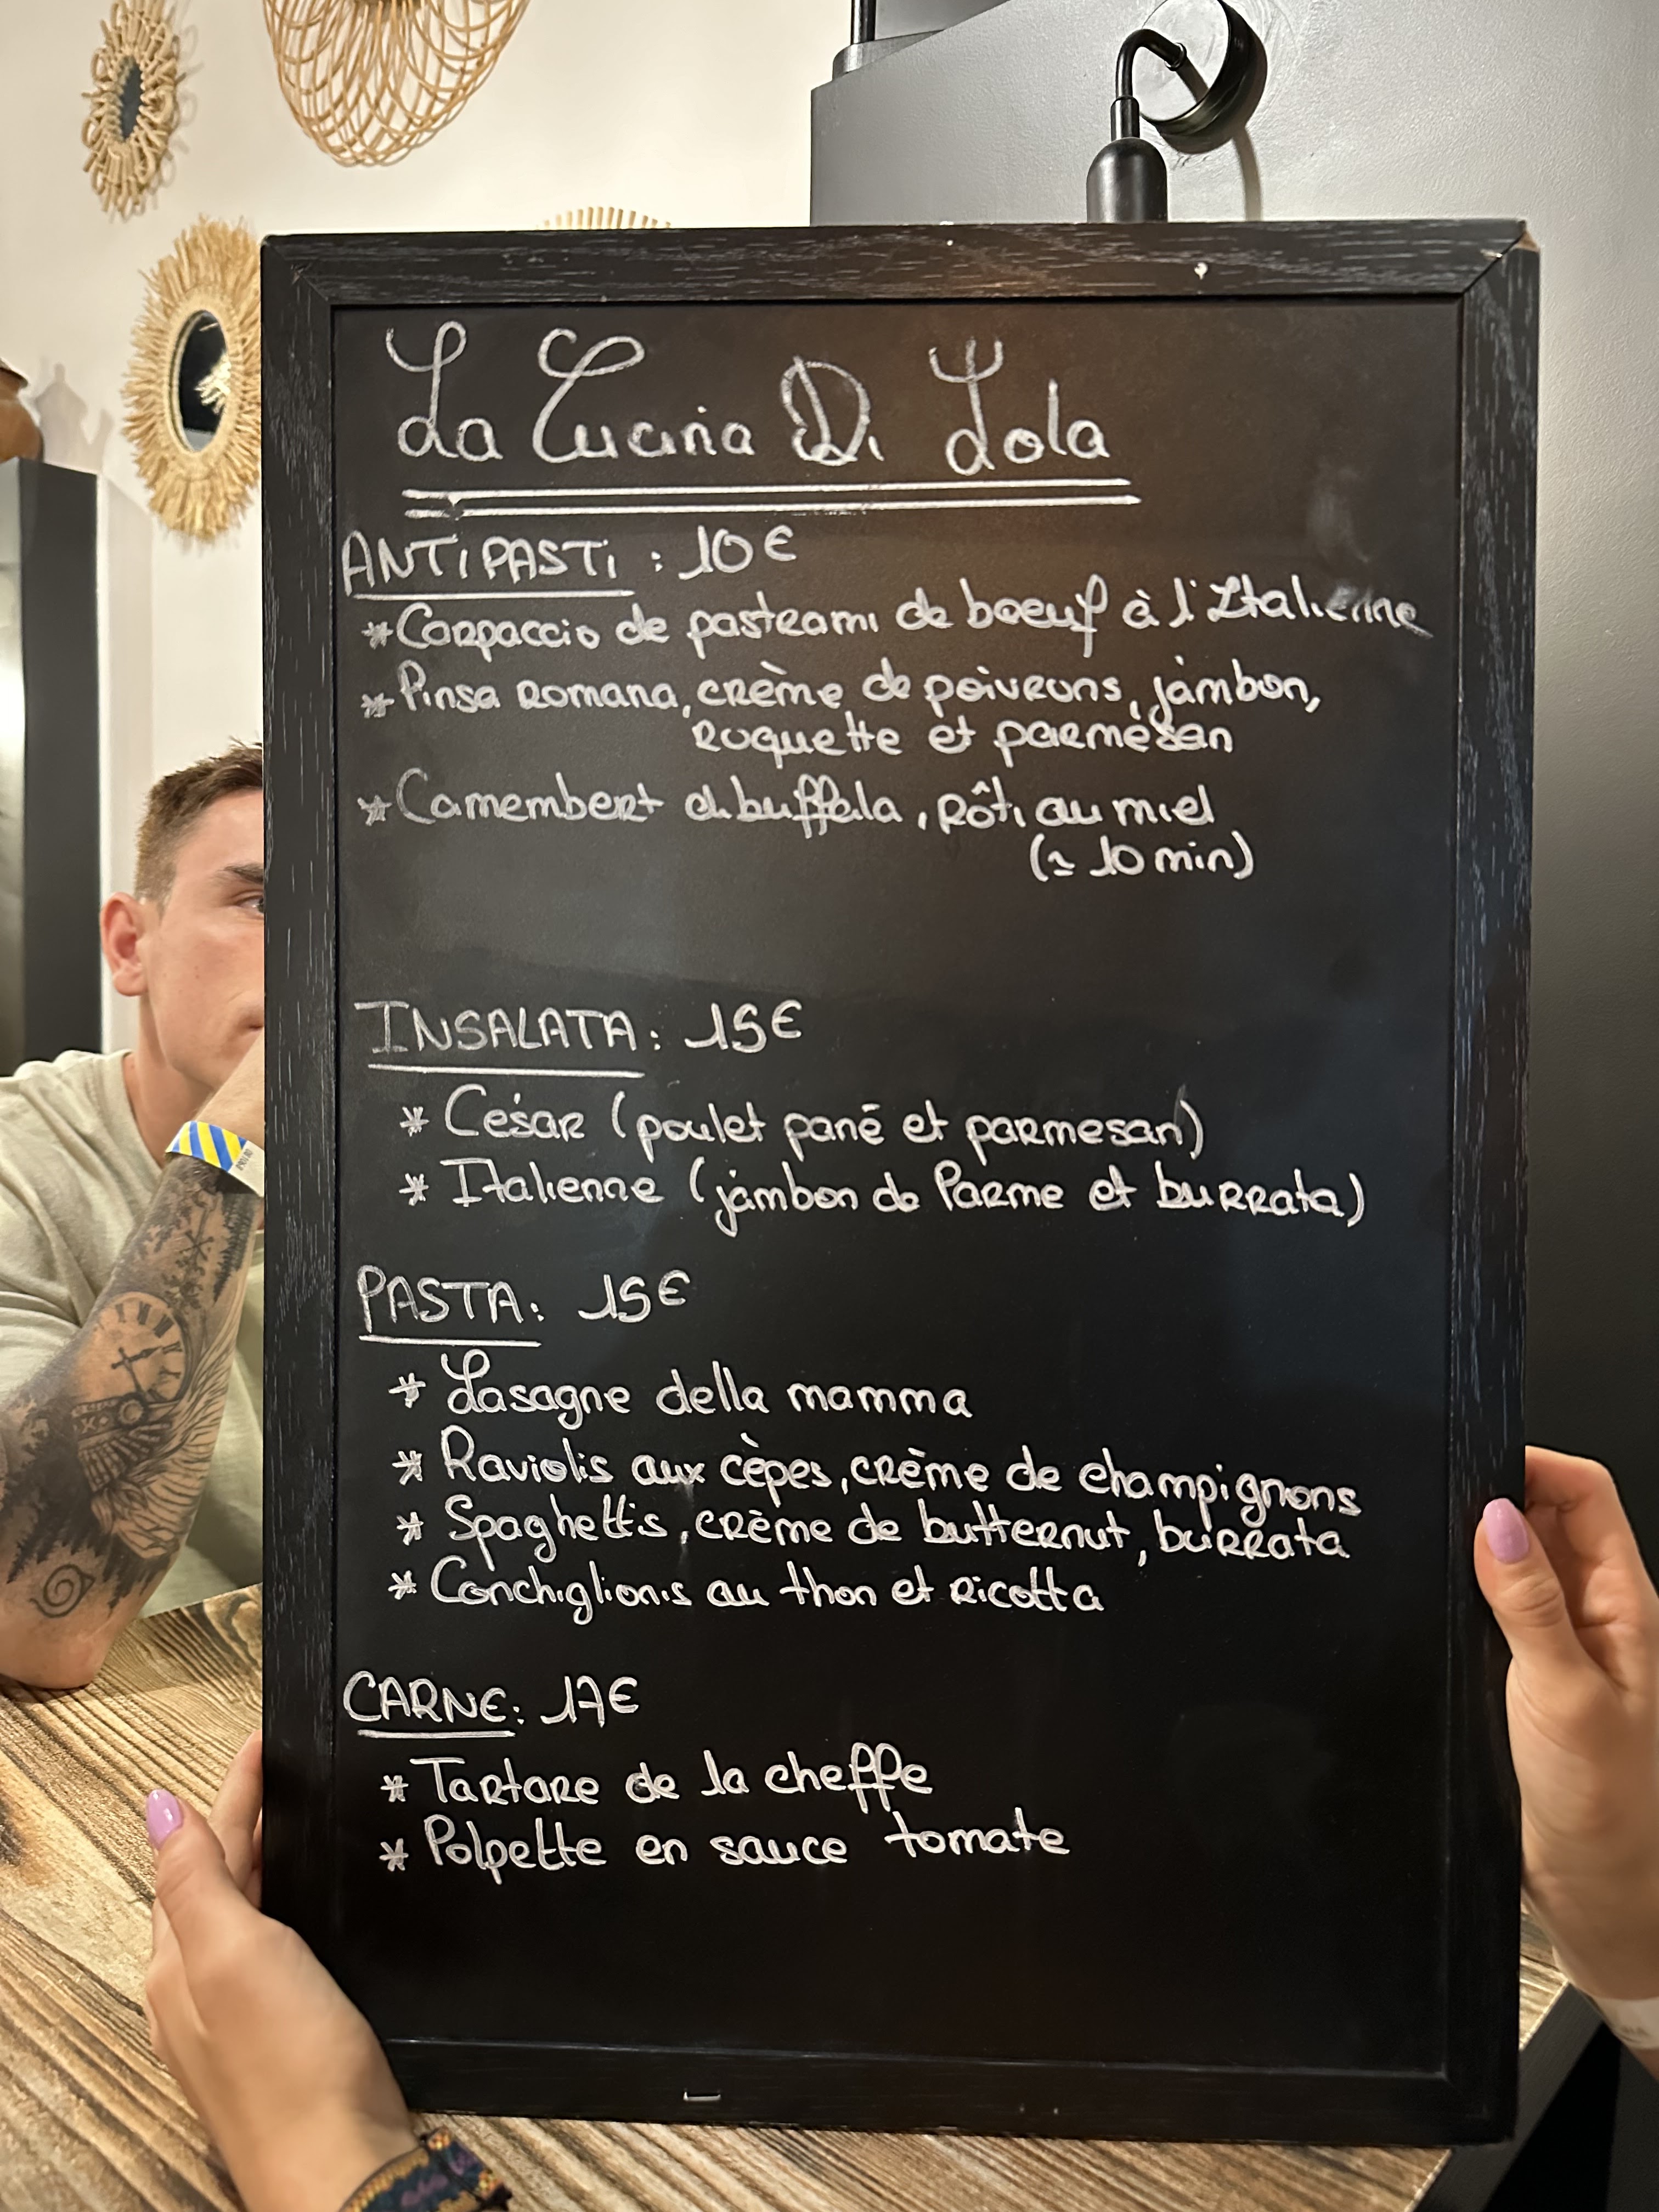 La Cucina Di Lola
ANTIPASTI : 10€
* Carpaccio de pastrami de boeuf à l'Italienne
* Pinsa Romana, crème de poivrons, jambon,
roquette et parmesan
* Camembert di buffala, Rôti au miel
(≃ 10 min)
INSALATA : 15€
* César (poulet pané et parmesan)
* Italienne (jambon de Parme et burrata)
PASTA : 15€
* Lasagne della mamma
* Raviolis aux cèpes, crème de champignons
* Spaghettis, crème de butternut, burrata
* Conchiglionis au thon et ricotta
CARNE : 17€
* Tartare de la cheffe
* Polpette en sauce tomate